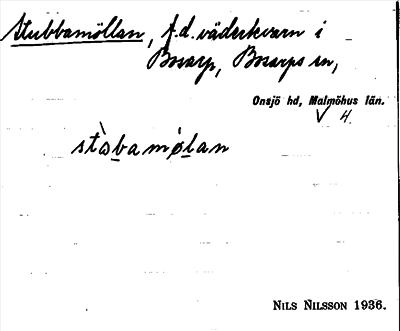 Stubbamöllan, f.d. väderkvarn i
Bosarp, Bosarps sn,
Onsjö hd, Malmöhus län.
V 4.
stòbamø̀lan
NILS NILSSON 1936.